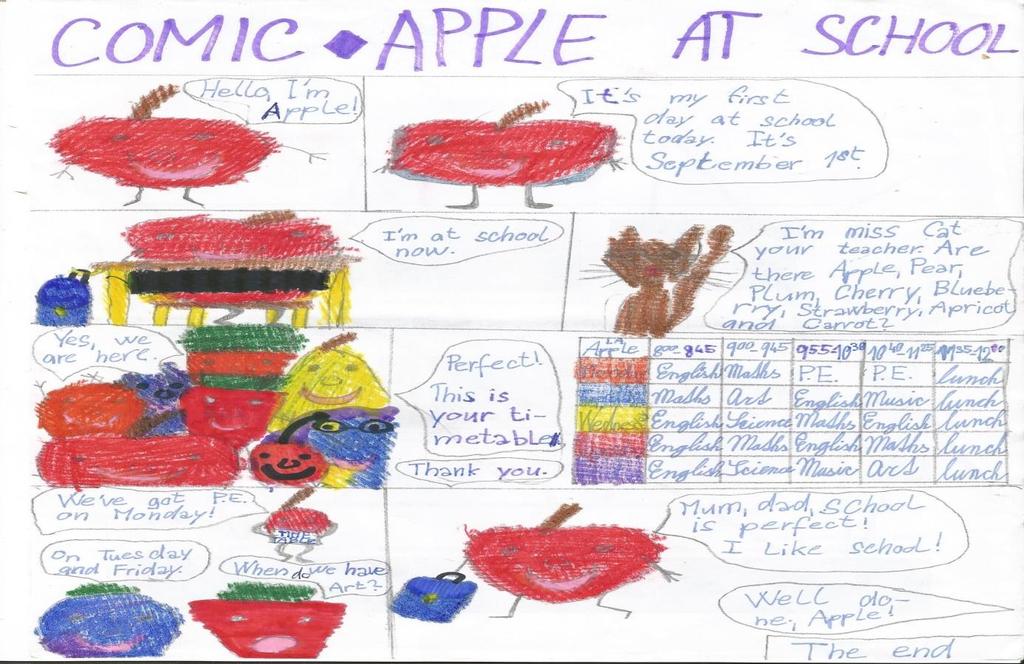 COMIC ◆ APPLE AT SCHOOL
Hello, I'm
Apple!
It's my first
day at school
today. It's
September 1st.
I'm at school
now.
I'm miss Cat
your teacher. Are
there Apple, Pear,
Plum, Cherry, Bluebe-
rry, Strawberry, Apricot
and Carrot?
Yes, we
are here.
Perfect!
This is
your ti-
metable.
Thank you.
Apple 8⁰⁰-8⁴⁵ 9⁰⁰-9⁴⁵ 9⁵⁵-10³⁰ 10⁴⁰-11²⁵ 11³⁵-12⁰⁰
English Maths P.E. P.E. lunch
Maths Art English Music lunch
Wednes English Science Maths English lunch
English Maths English Maths lunch
English Science Music Art lunch
We've got P.E.
on Monday!
TIME
TABLE
On Tuesday
and Friday.
When do we have
Art?
Mum, dad, school
is perfect!
I like school!
Well do-
ne, Apple!
The end